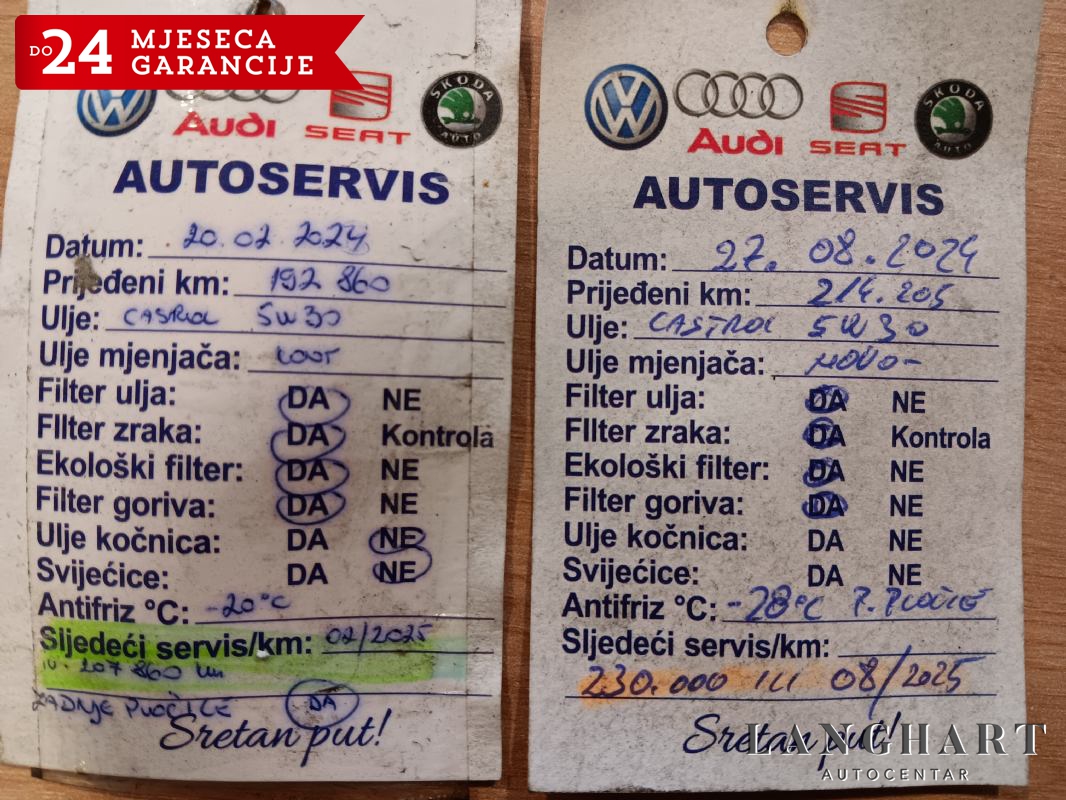 DO 24 MJESECA GARANCIJE
Audi SEAT ŠKODA AUTO
AUTOSERVIS
Datum: 20.02.2024
Prijeđeni km: 192 860
Ulje: CASTROL 5W30
Ulje mjenjača:
Filter ulja: DA NE
FIlter zraka: DA Kontrola
Ekološki filter: DA NE
Filter goriva: DA NE
Ulje kočnica: DA NE
Svijećice: DA NE
Antifriz °C: -20°C
Sljedeći servis/km: 02/2025
207 860 km
ZADNJE PLOČICE DA
Sretan put!
Audi SEAT ŠKODA AUTO
AUTOSERVIS
Datum: 27. 08. 2024
Prijeđeni km: 214.205
Ulje: CASTROL 5W30
Ulje mjenjača: NOVO-
Filter ulja: DA NE
FIlter zraka: DA Kontrola
Ekološki filter: DA NE
Filter goriva: DA NE
Ulje kočnica: DA NE
Svijećice: DA NE
Antifriz °C: -28°C P. PLOČICE
Sljedeći servis/km:
230.000 ILI 08/2025
Sretan put!
LANGHART
AUTOCENTAR